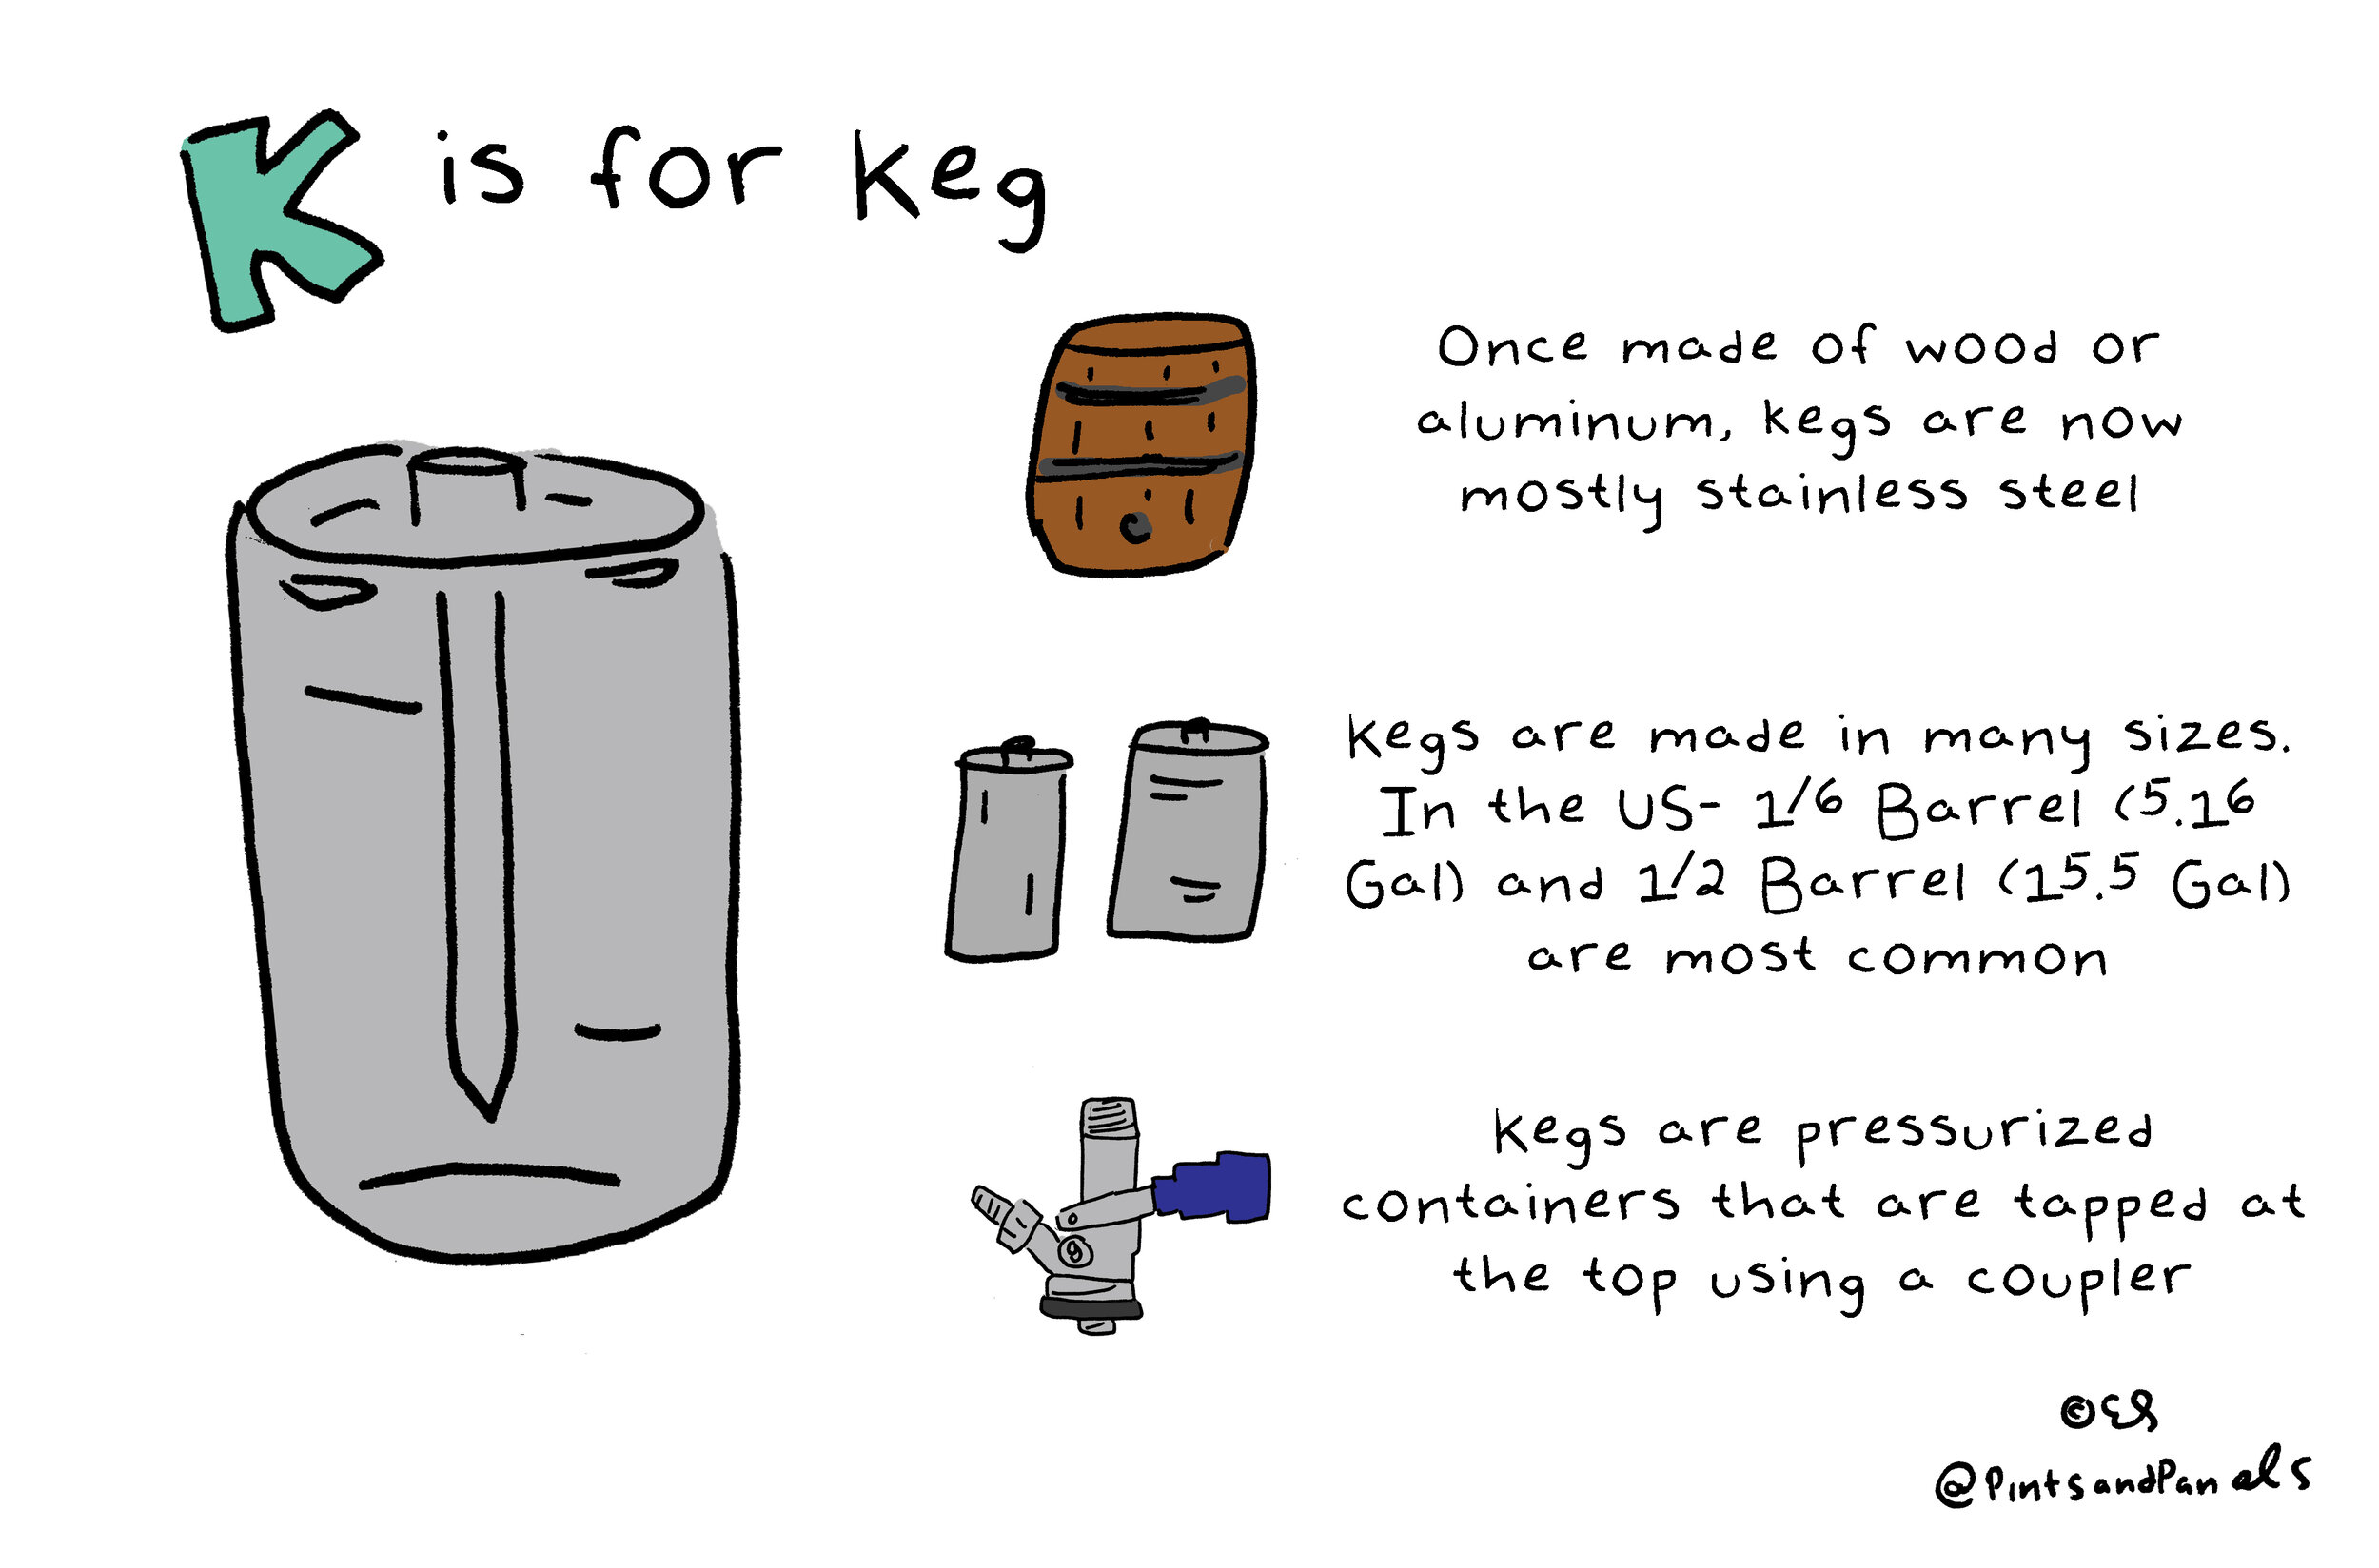 K is for Keg
Once made of wood or
aluminum, kegs are now
mostly stainless steel
kegs are made in many sizes.
In the US- 1/6 Barrel (5.16
Gal) and 1/2 Barrel (15.5 Gal)
are most common
kegs are pressurized
containers that are tapped at
the top using a coupler
©ES
@PintsandPanels